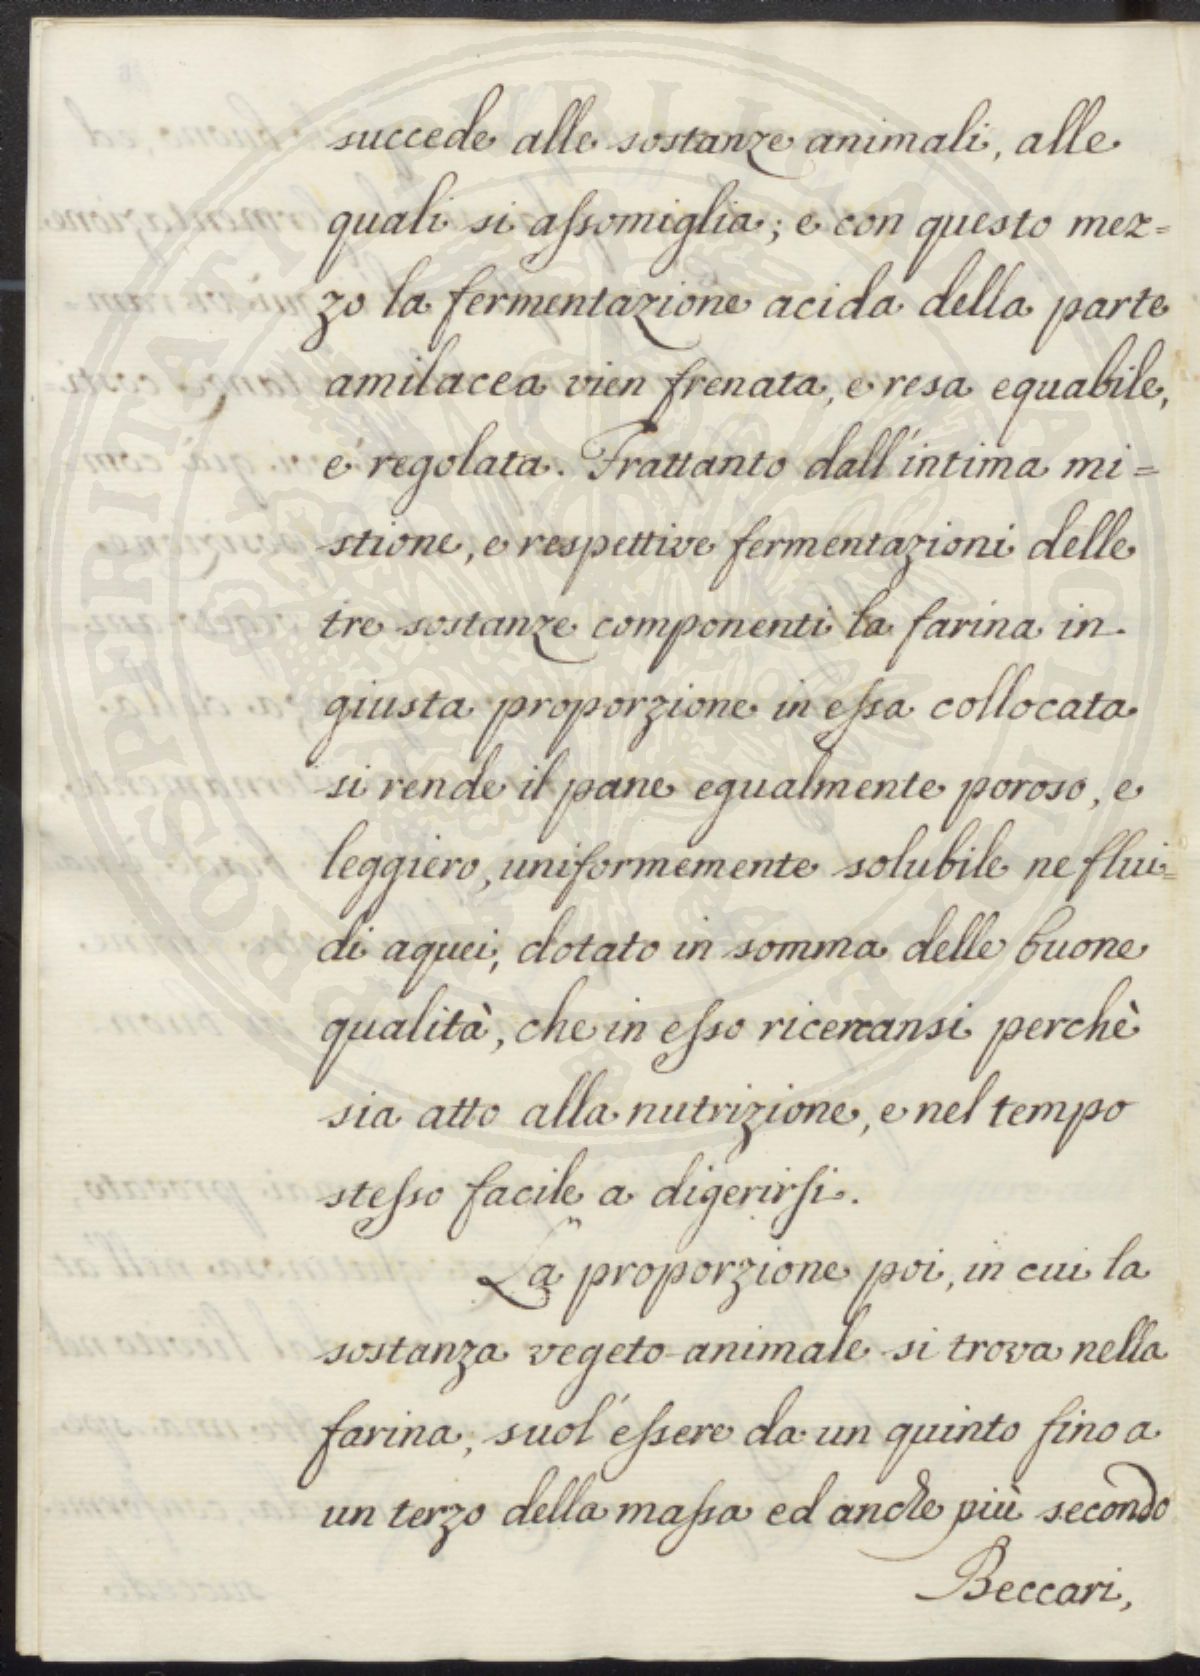 succede alle sostanze animali, alle
quali si assomiglia; e con questo mez=
zo la fermentazione acida della parte
amilacea vien frenata, e resa equabile,
e regolata. Frattanto dall'intima mi=
stione, e respettive fermentazioni delle
tre sostanze componenti la farina in
giusta proporzione in essa collocata
si rende il pane egualmente poroso, e
leggiero, uniformemente solubile ne flui=
di aquei, dotato in somma delle buone
qualità, che in esso ricercansi perchè
sia atto alla nutrizione, e nel tempo
stesso facile a digerirsi.
La proporzione poi, in cui la
sostanza vegeto-animale si trova nella
farina, suol'essere da un quinto fino a
un terzo della massa ed anche più secondo
Beccari,